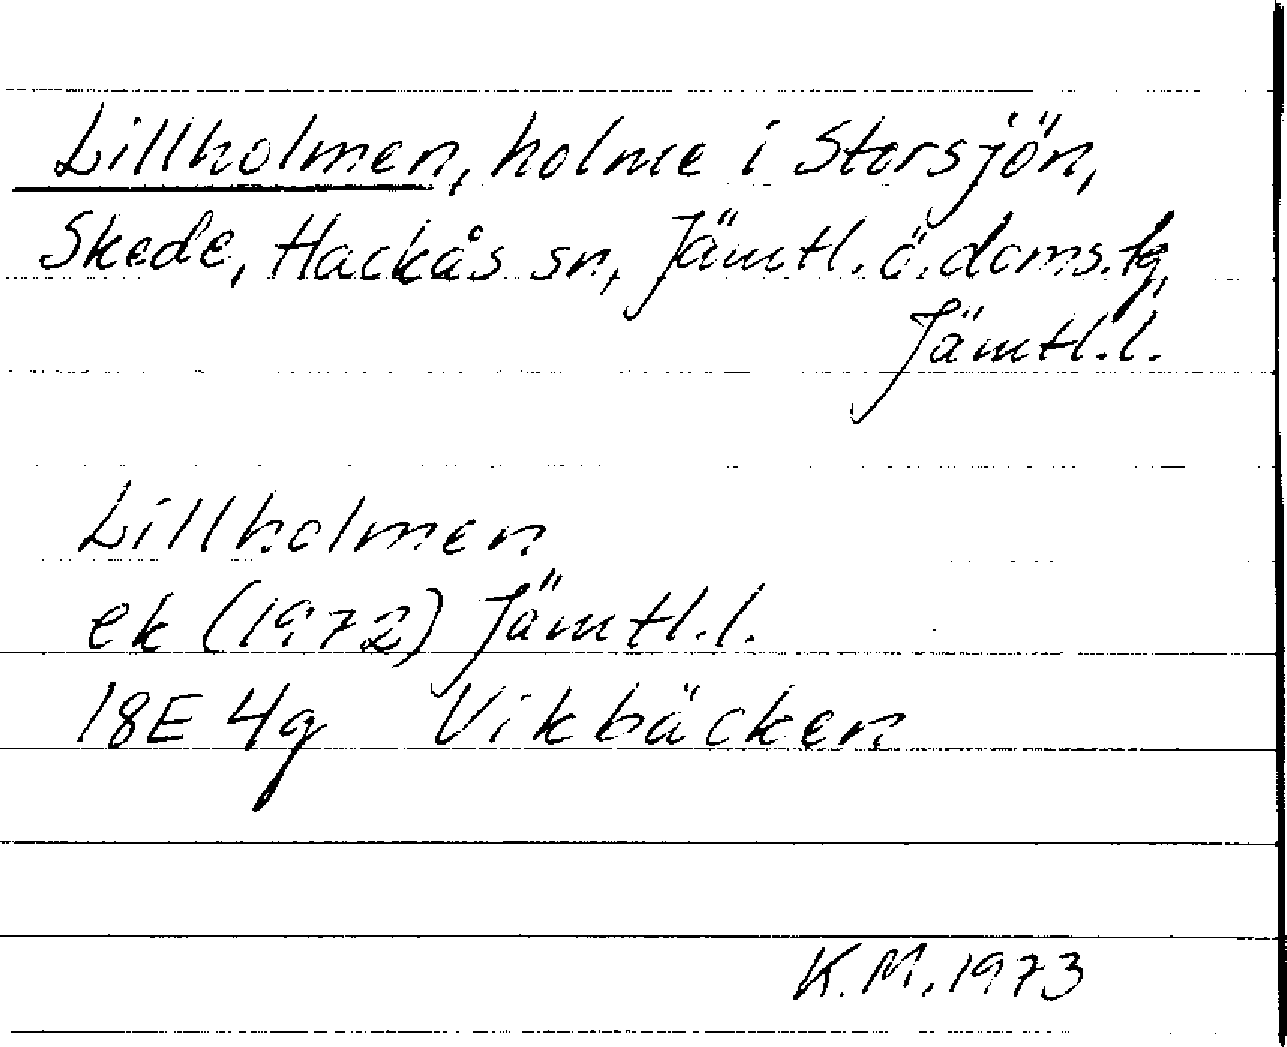 Lillholmen, holme i Storsjön,
Skede, Hackås sn, Jämtl. ö. doms.
Jämtl.l.
Lillholmen
ek (1972) Jämtl.l.
18E 4g Vikbäcken
K.M. 1973